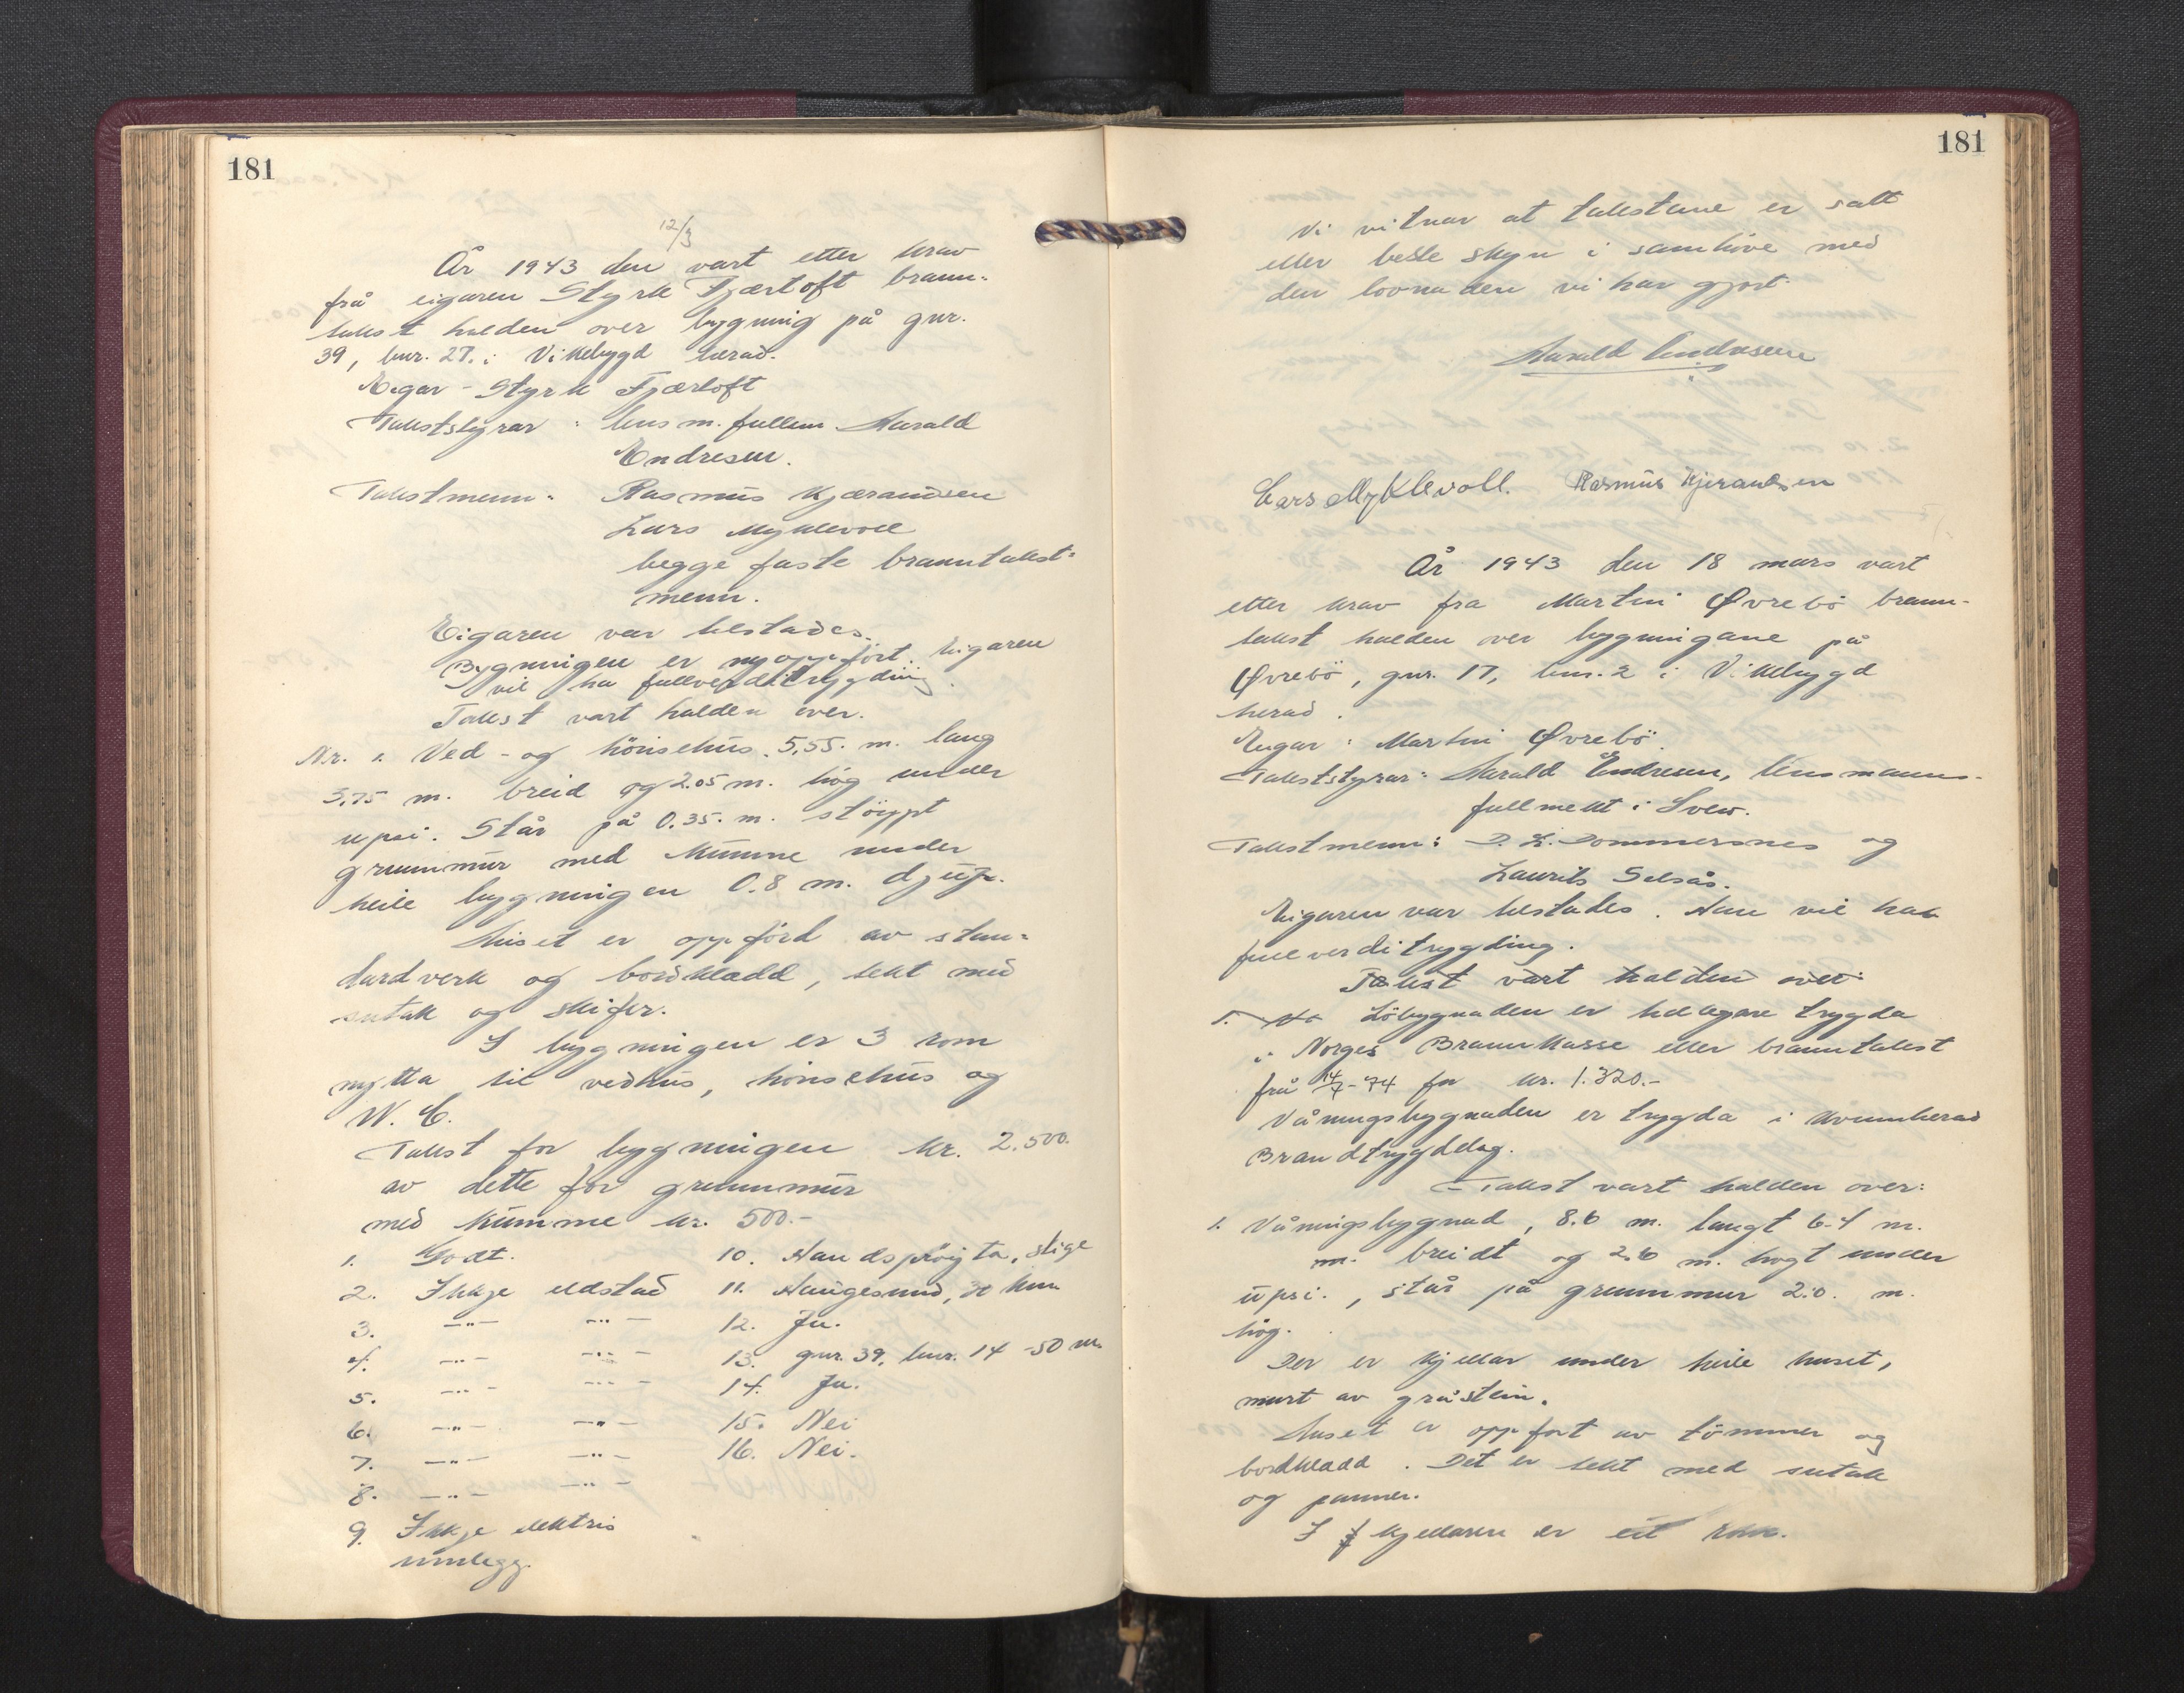 181
12/3
År 1943 den vart etter krav
frå eigaren Styrk Fjærtoft brann-
takst halden over bygning på gnr.
39, bnr. 27. i Vikebygd herad.
Eigar - Styrk Fjærtoft
Takststyrar : lensm. fullm. Harald
Endresen.
Takstmenn: Rasmus Kjærandsen
Lars Myklevoll
begge faste branntakst-
menn.
Eigaren var tilstades.
Bygningen er nyoppført. Eigaren
vil ha fullverditrygding.
Takst vart halden over.
Nr. 1. Ved - og hönsehus. 5,55. m. lang
3,75 m. breid og 2.05 m. høg under
upsi. Står på 0.35. m. støypt
grunnmur med kumme under
heile bygningen 0.8 m. djup.
Huset er oppförd av stan-
dardverk og bordkledd, tekt med
sutak og skifer.
I bygningen er 3 rom
nytta til vedhus, hönsehus og
W. C.
Takst for bygningen kr. 2.500.
av dette for grunnmur
med kumme kr. 500.-
1. Godt. 10. Handspröyta, stige
2. Ikkje eldstad 11. Haugesund, 30 km
3. -"- -"- 12. Ja.
4. -"- -"- 13. gnr. 39, bnr. 14 - 50 m
5. -"- -"- 14. Ja.
6. -"- -"- 15. Nei
7. -"- -"- 16. Nei.
8. -"- -"-
9. Ikkje elektris
innlegg.
181
Vi vitnar at takstane er satt
etter beste skyn i samhöve med
den lovnaden vi har gjort.
Harald Endresen
Lars Myklevoll. Rasmus Kjerandsen
År 1943 den 18 mars vart
etter krav fra Martin Øvrebö brann-
takst halden over bygningane på
Øvrebö, gnr. 17, bnr. 2 i Vikebygd
herad.
Eigar : Martin Øvrebö.
Takststyrar: Harald Endresen, lensmanns-
fullmekt i Sveio.
Takstmenn: D. L. Dommersnes og
Laurits Selsås.
Eigaren var tilstades. Han vil ha
fullverditrygding.
Takst vart halden over:
1. Löbygnaden er tidlegare trygda
i Norges Brannkasse etter branntakst
frå 14/7-74 for kr. 1.320.-
Våningsbygnaden er trygda i Kvinnherad
Brandtrygdelag.
Takst vart halden over:
1. Våningsbygnad, 8.6 m. langt 6.4 m.
m. breidt og 2.6 m. høgt under
upsi., står på grunnmur 2.0. m.
høg.
Der er kjellar under heile huset,
murt av gråstein.
Huset er oppført av tömmer og
bordkledd. Det er tekt med sutak
og panner.
I kjellaren er eit rom.